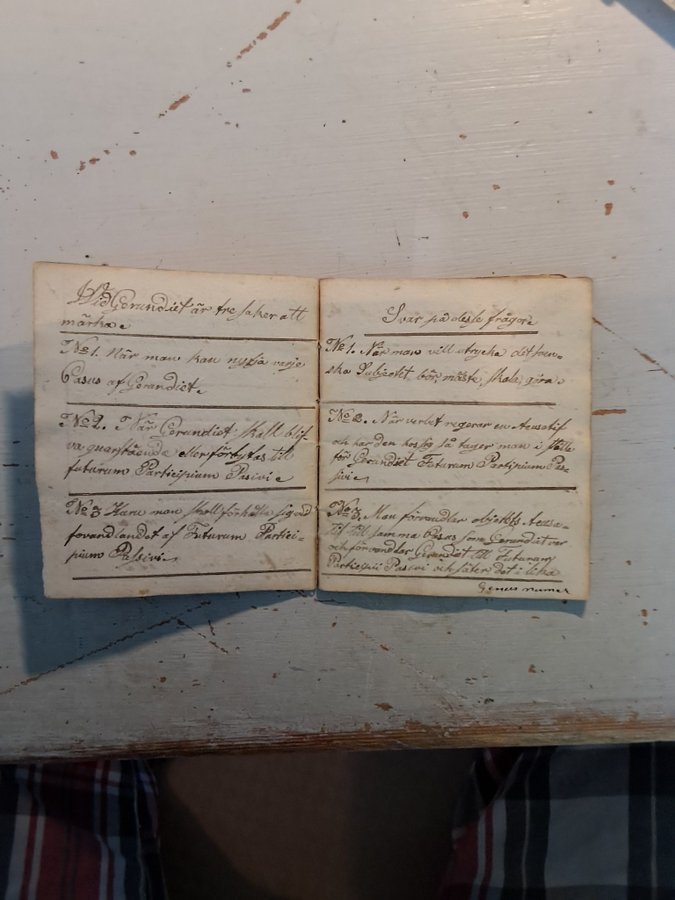 Vid Gerundiet är tre saker att
märka
No 1. När man kan nyttja varje
Casus af Gerundiet
No 2. När Gerundiet skall blif-
va quarstående eller förbytas till
futurum Participium Pasivi
No 3 Huru man skall förhålla sig vid
forvandlandet af Futurum Partici-
pium Passivi
Svar på desse frågor
No 1. När man vill utrycka det sven-
ska Subjectet bör, måste, skola, göra
No 2. När verbet regerar en Acusatif
och har den hos sig så tager man i ställe
för Gerundiet Futurum Partisipium Pas-
sivi
No 3. Man förvandlar objektets Acusa-
tif till samma Casus som Gerundiet var
och förvandlar Gerundiet till Futurum
Participii Pasivi och sätter det i lika
Genus numer